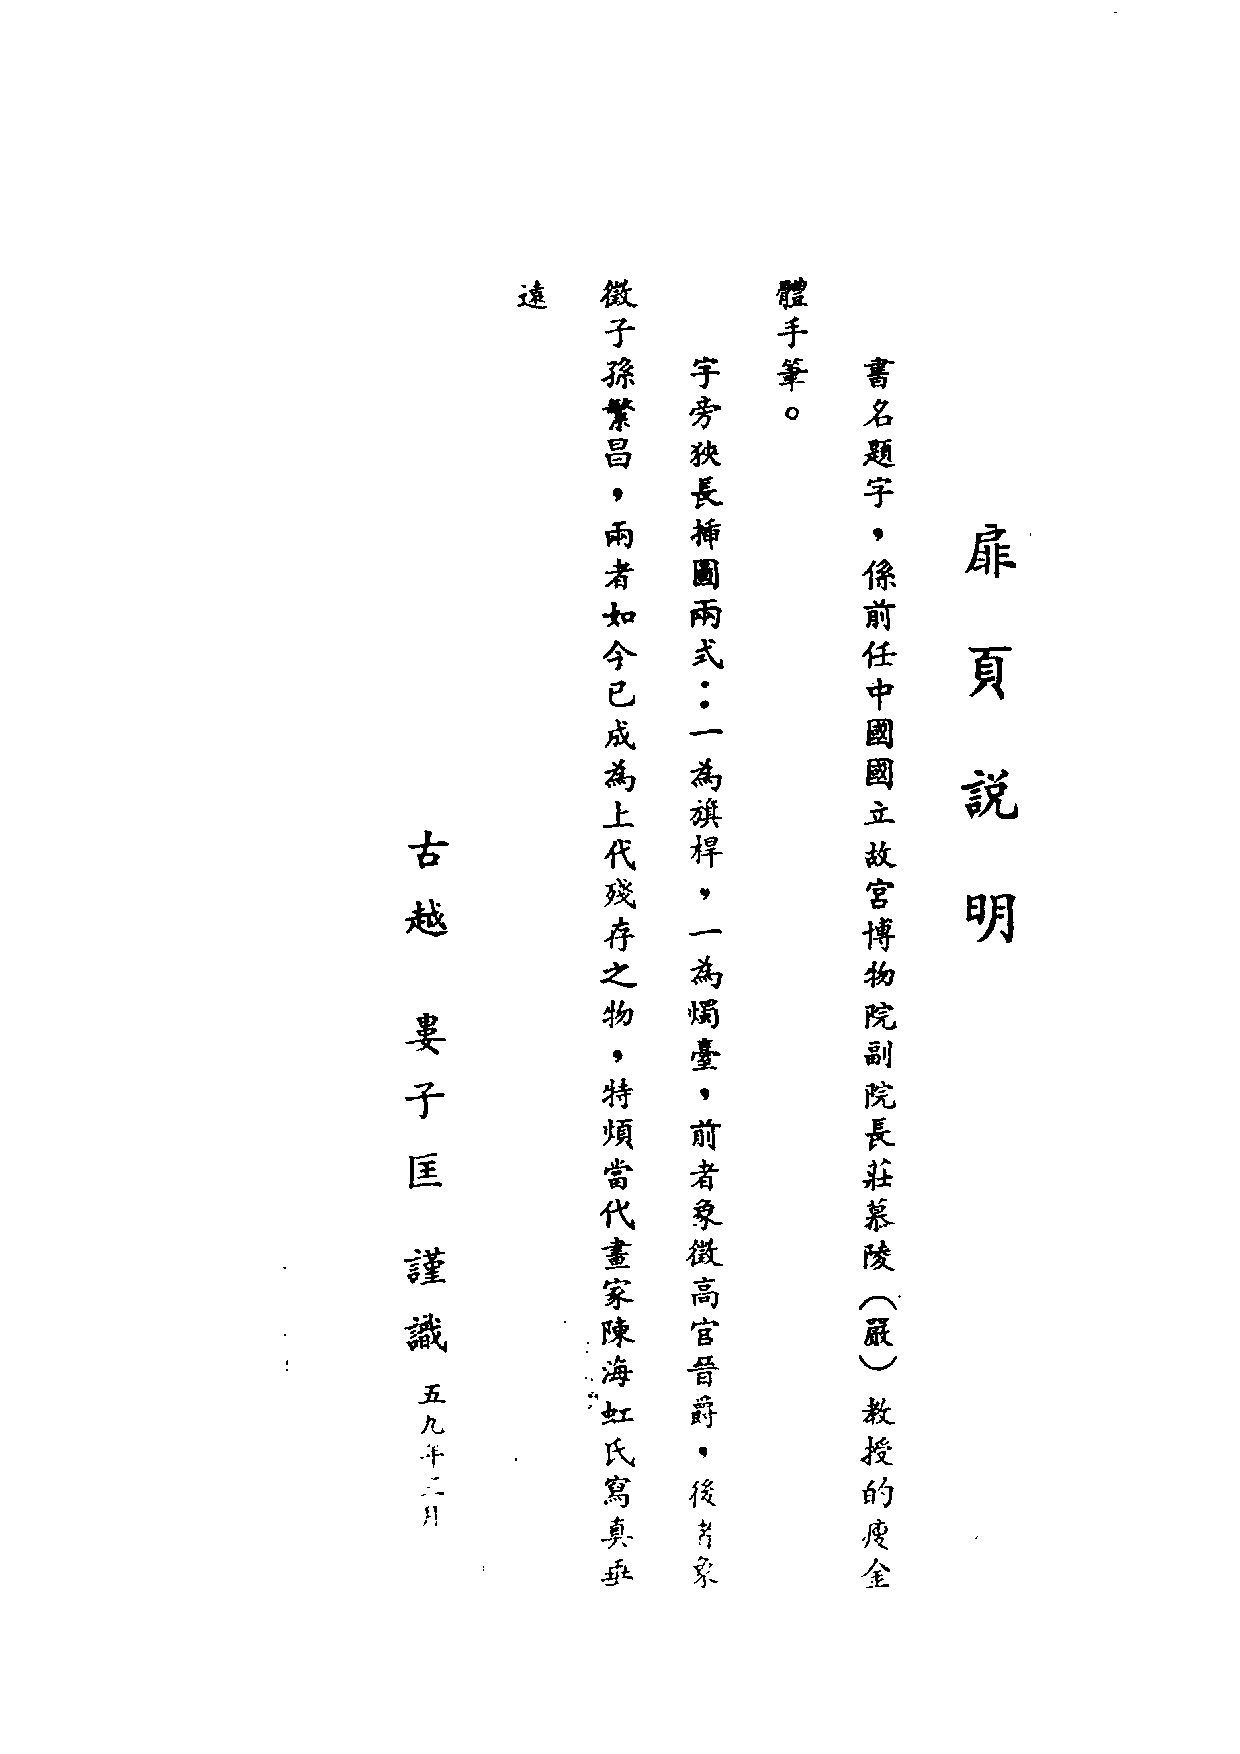 扉頁説明
書名題字，係前任中國國立故宮博物院副院長莊慕陵（嚴）教授的瘦金
體手筆。
字旁狹長插圖兩式：一為旗桿，一為燭臺，前者象徵高官晉爵，後者象
徵子孫繁昌，兩者如今已成為上代殘存之物，特煩當代畫家陳海虹氏寫真垂
遠
古越　婁子匡　謹識　五九年二月